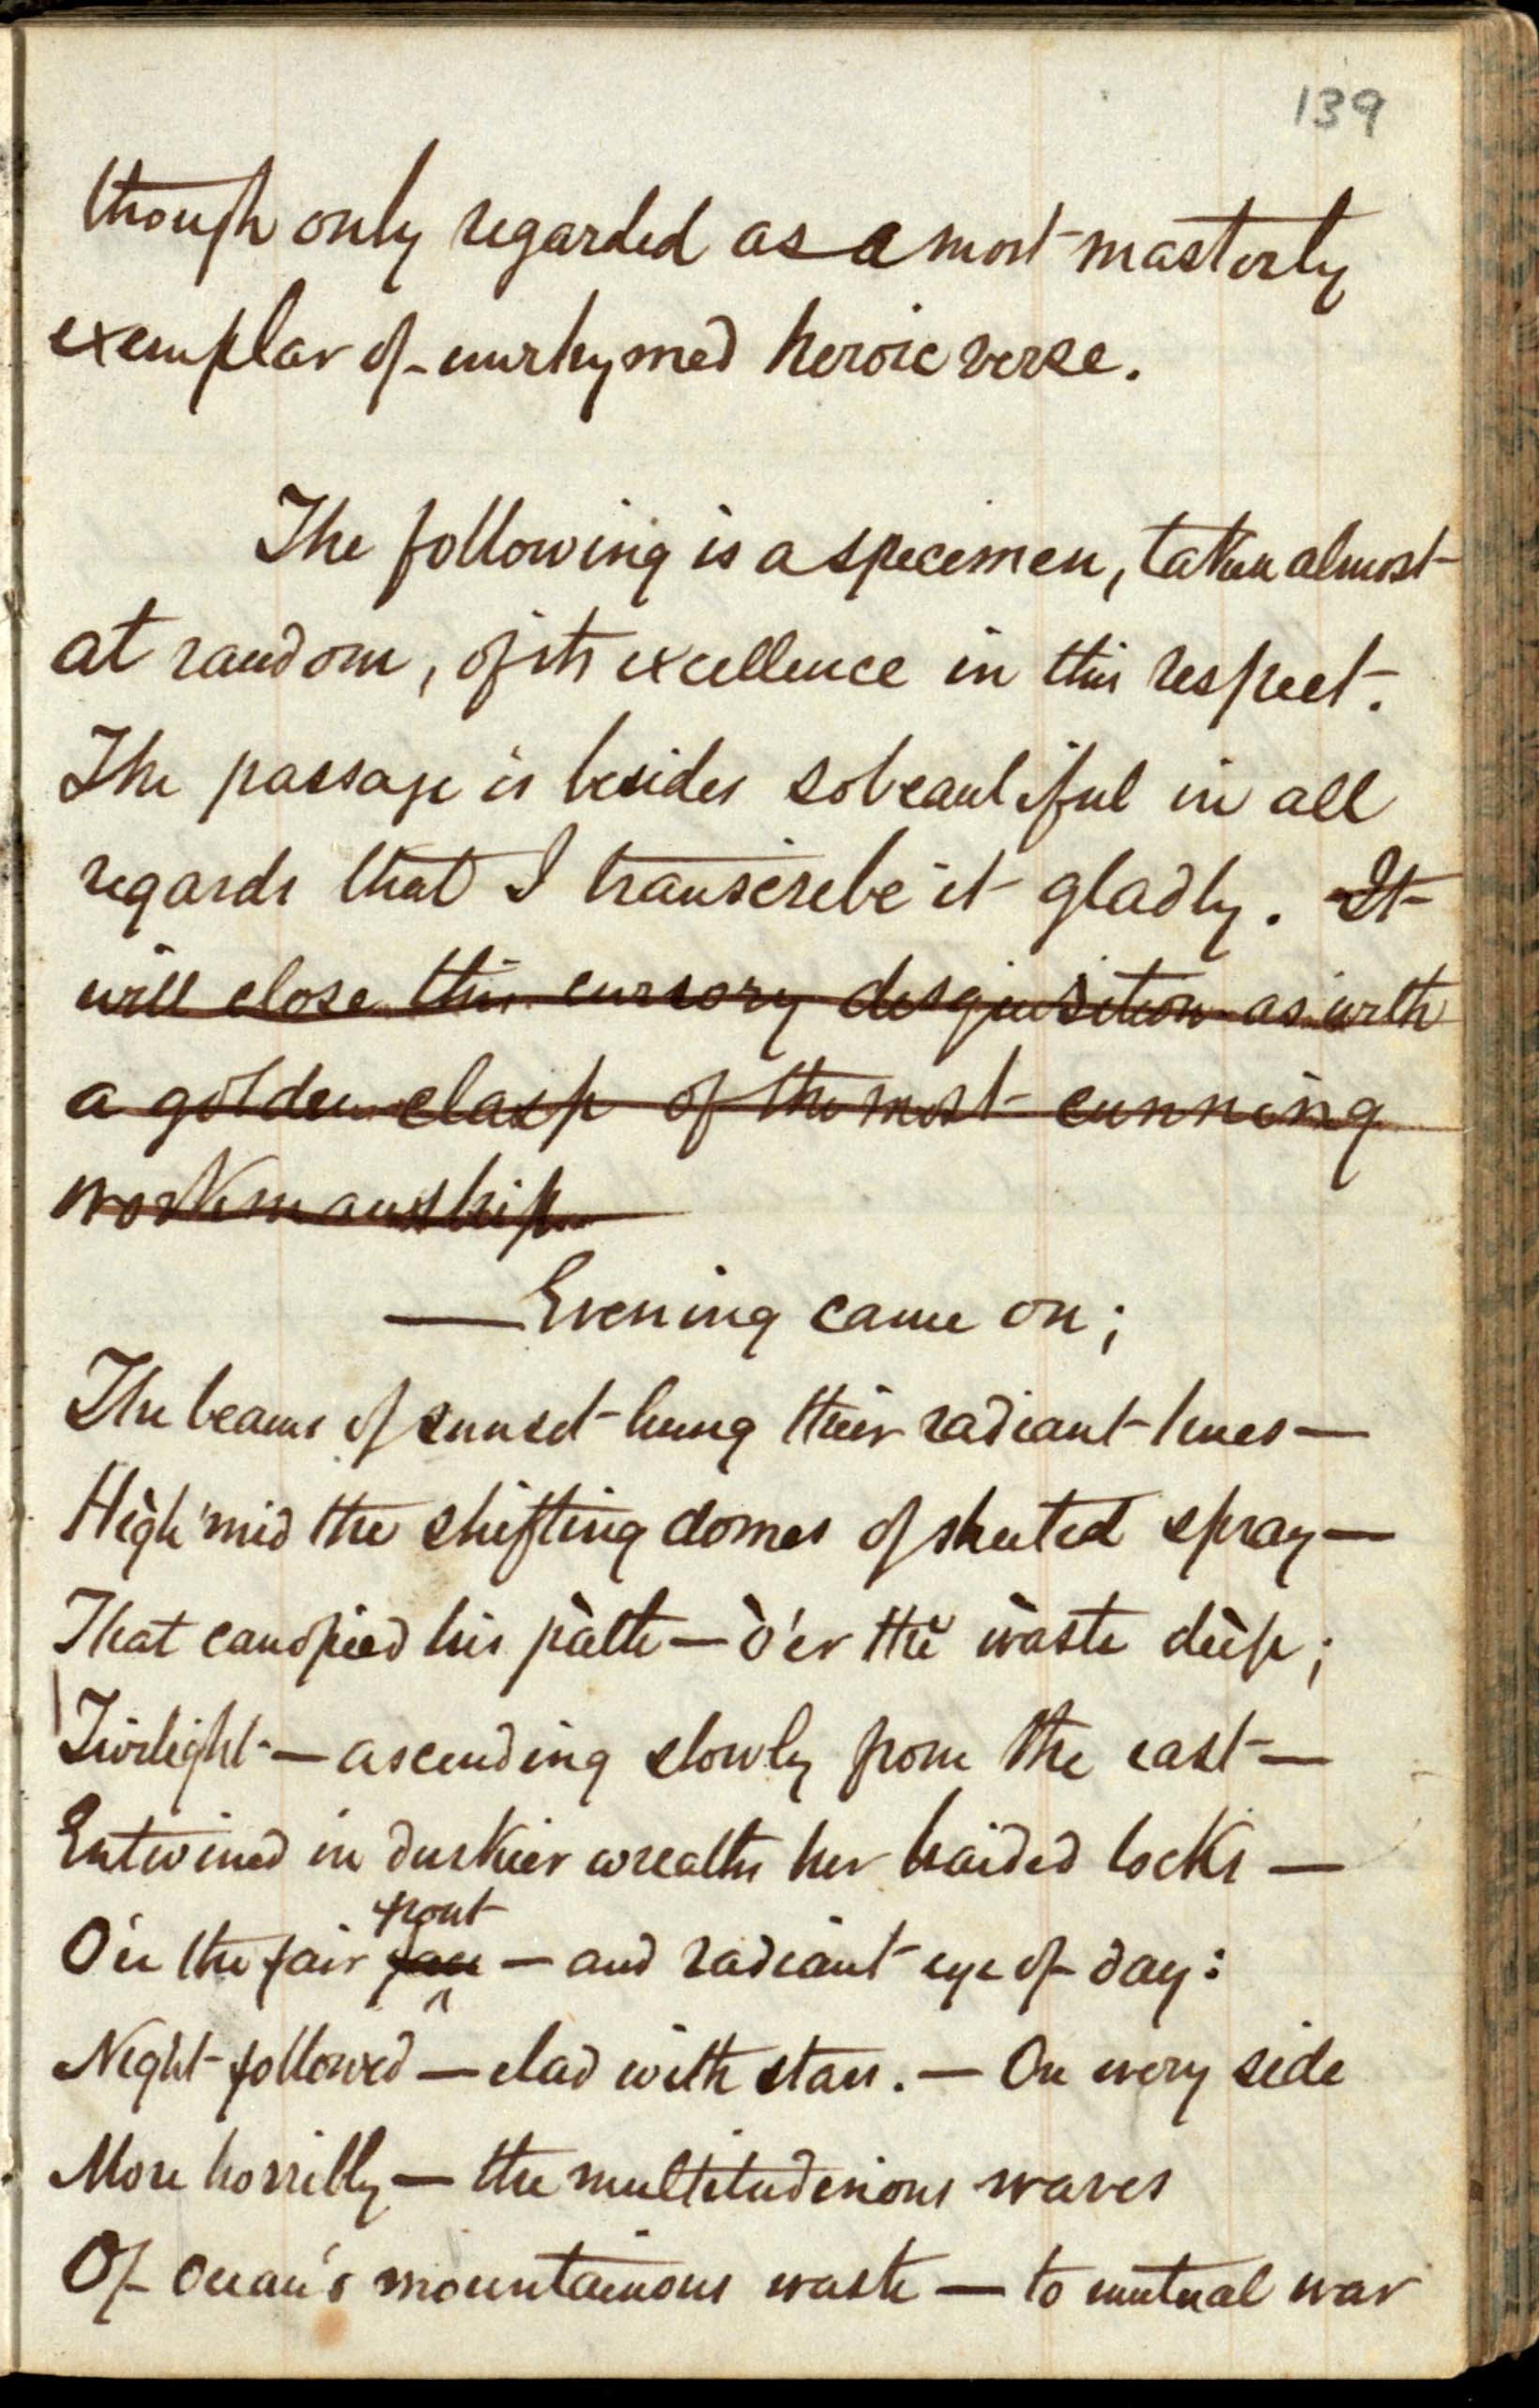 139
though only regarded as a most masterly
exemplar of unrhymed heroic verse.
The following is a specimen, taken almost
at random, of its excellence in this respect.
The passage is besides so beautiful in all
regards that I transcribe it gladly. It
will close this cursory disquisition as with
a golden clasp of the most cunning
workmanship
— Evening came on;
The beams of sunset hung their radiant hues —
High 'mid the shifting domes of sheeted spray —
That canopied his path — o'er the waste deep;
Twilight — ascending slowly from the east —
Entwined in duskier wreaths her braided locks —
front
O'er the fair face — and radiant eye of day:
Night followed — clad with stars. — On every side
More horribly — the multitudinous waves
Of Ocean's mountainous waste — to mutual war